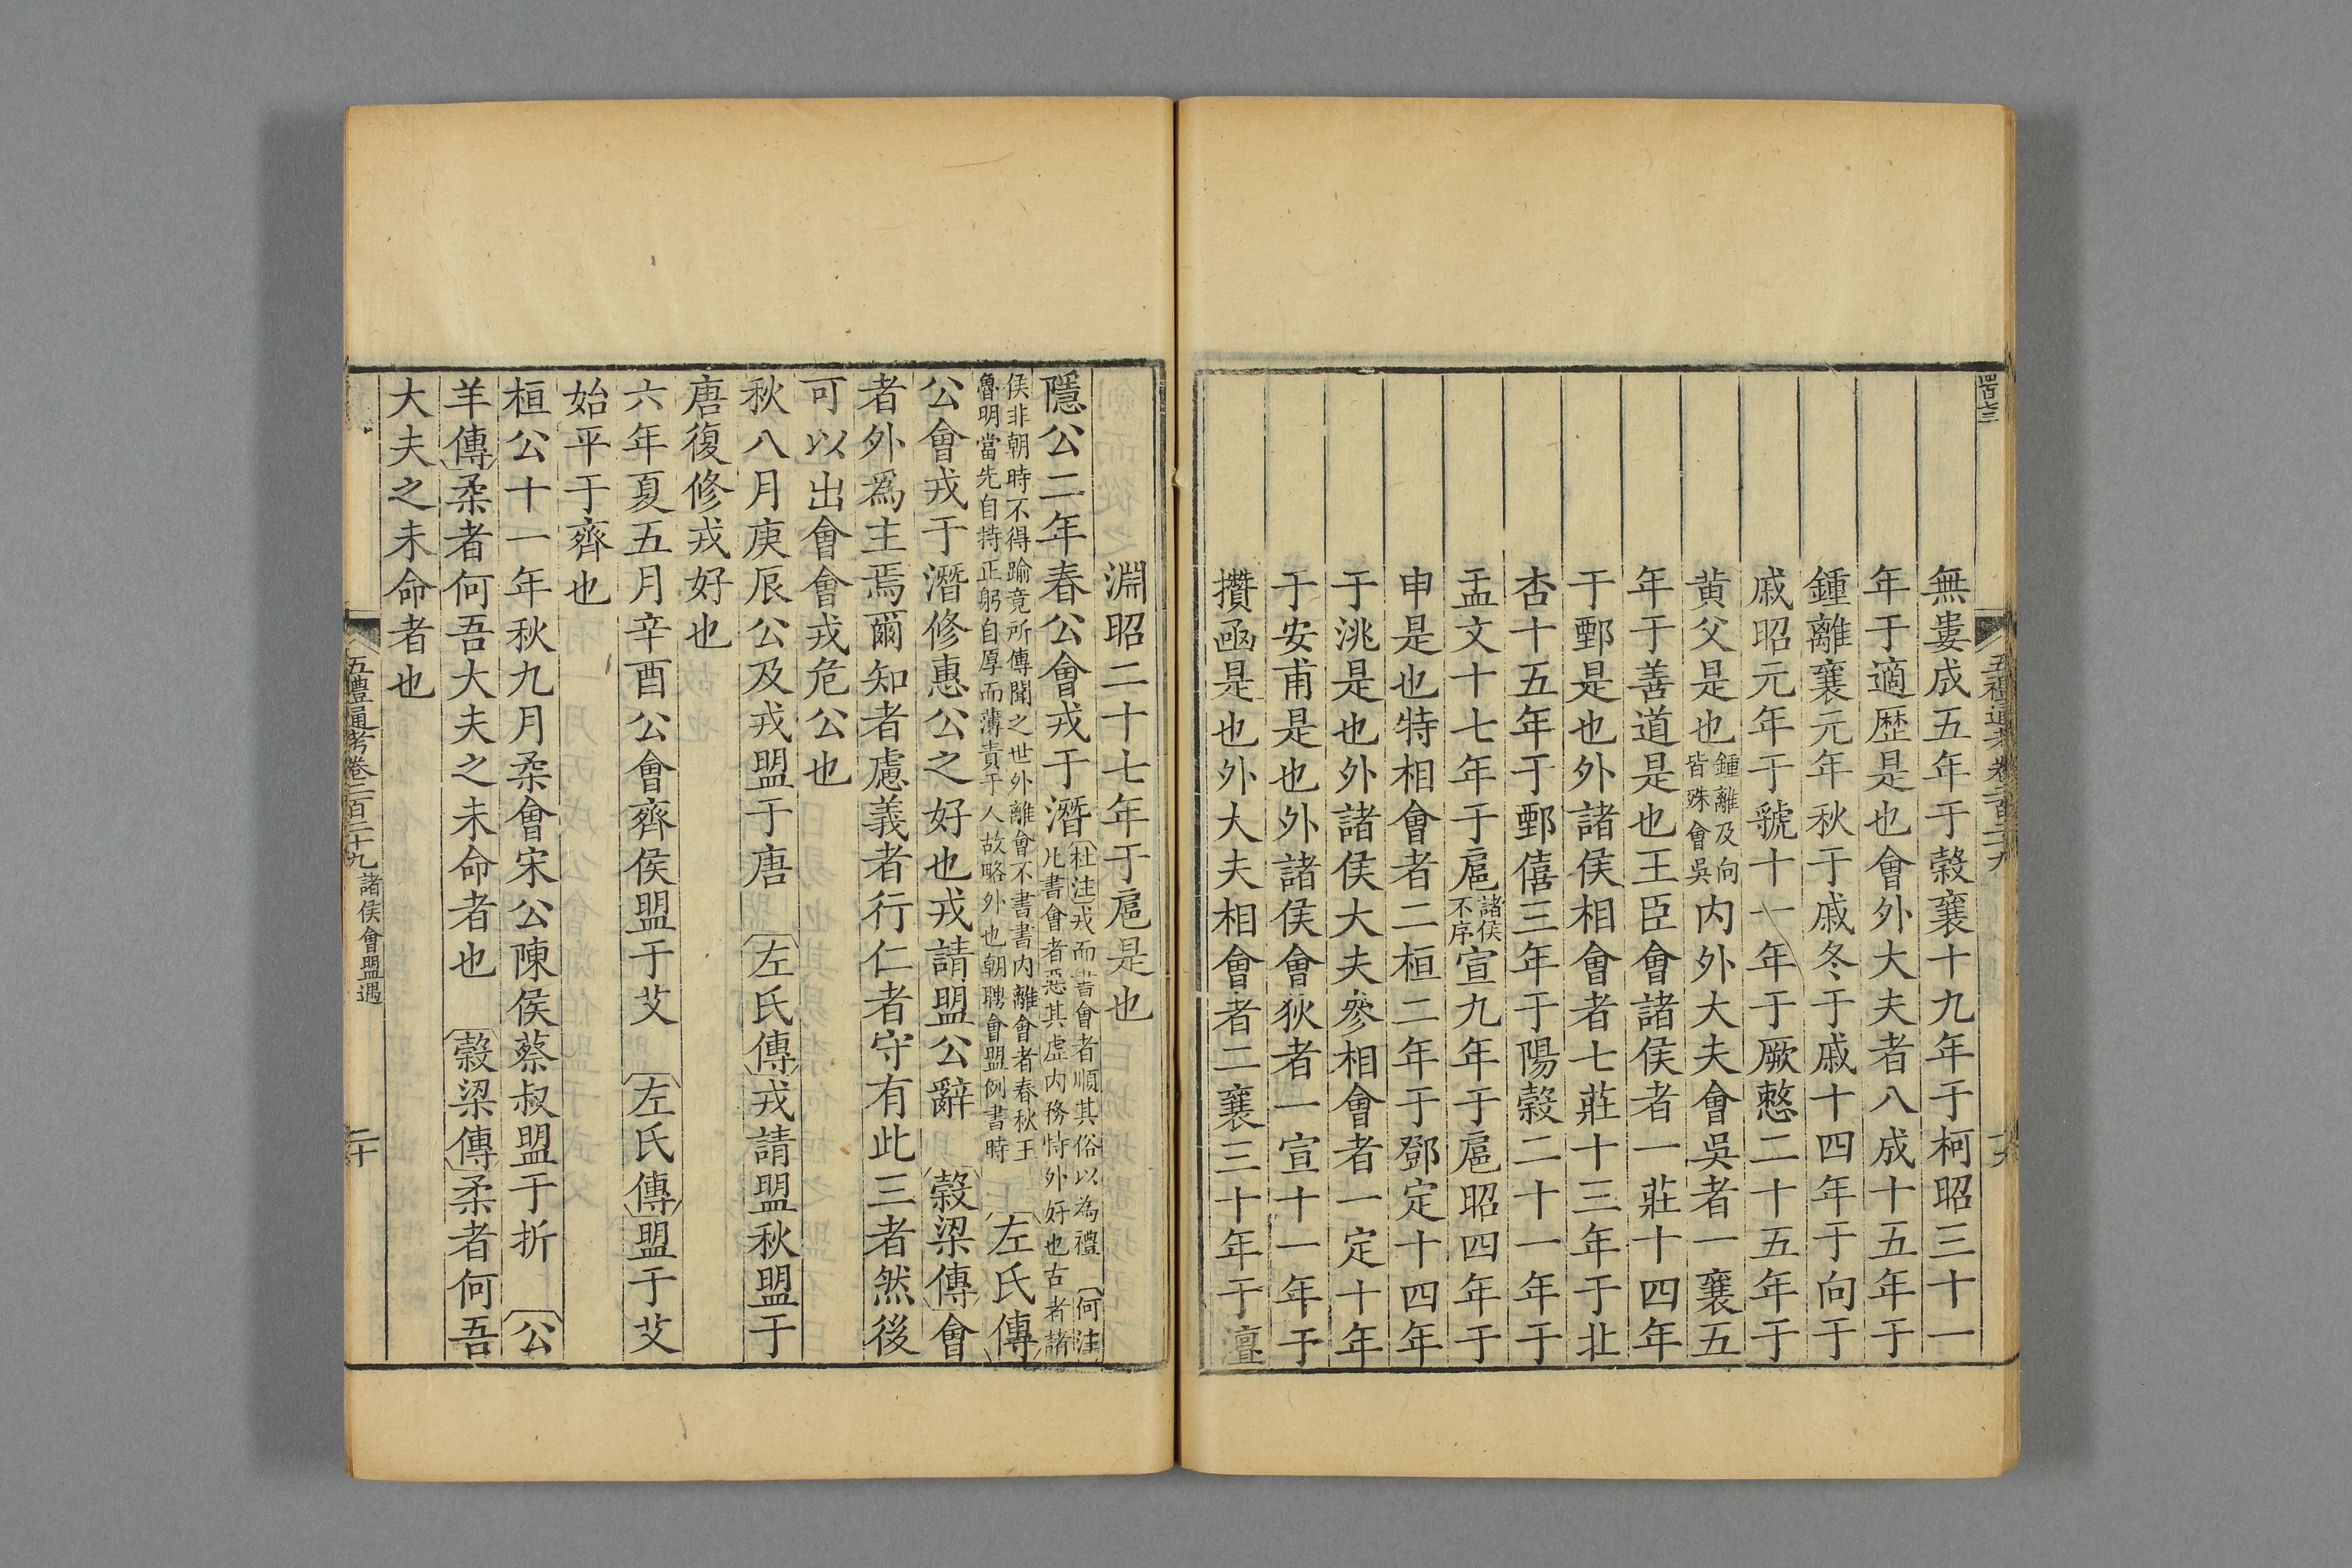 無婁成五年于穀襄十九年于柯昭三十一
年于適歷是也會外大夫者八成十五年于
鍾離襄元年秋于戚冬于戚十四年于向于
戚昭元年于虢十一年于厥憖二十五年于
黃父是也鍾離及向皆殊會吳内外大夫會吳者一襄五
年于善道是也王臣會諸侯者一莊十四年
于鄄是也外諸侯相會者七莊十三年于北
杏十五年于鄄僖三年于陽穀二十一年于
盂文十七年于扈諸侯不序宣九年于扈昭四年于
申是也特相會者二桓二年于鄧定十四年
于洮是也外諸侯大夫參相會者一定十年
于安甫是也外諸侯會狄者一宣十一年于
攢函是也外大夫相會者二襄三十年于澶
淵昭二十七年于扈是也
隱公二年春公會戎于潛杜注戎而書會者順其俗以為禮 何注
凡書會者惡其虛内務恃外好也古者諸
侯非朝時不得踰竟所傳聞之世外離會不書書内離會者春秋王
魯明當先自持正躬自厚而薄責于人故略外也朝聘會盟例書時 左氏傳
公會戎于潛修惠公之好也戎請盟公辭 穀梁傳會
者外爲主焉爾知者慮義者行仁者守有此三者然後
可以出會會戎危公也
秋八月庚辰公及戎盟于唐 左氏傳戎請盟秋盟于
唐復修戎好也
六年夏五月辛酉公會齊侯盟于艾 左氏傳盟于艾
始平于齊也
桓公十一年秋九月柔會宋公陳侯蔡叔盟于折 公
羊傳柔者何吾大夫之未命者也 穀梁傳柔者何吾
大夫之未命者也
五禮通考卷二百二十九 諸侯會盟遇
二十